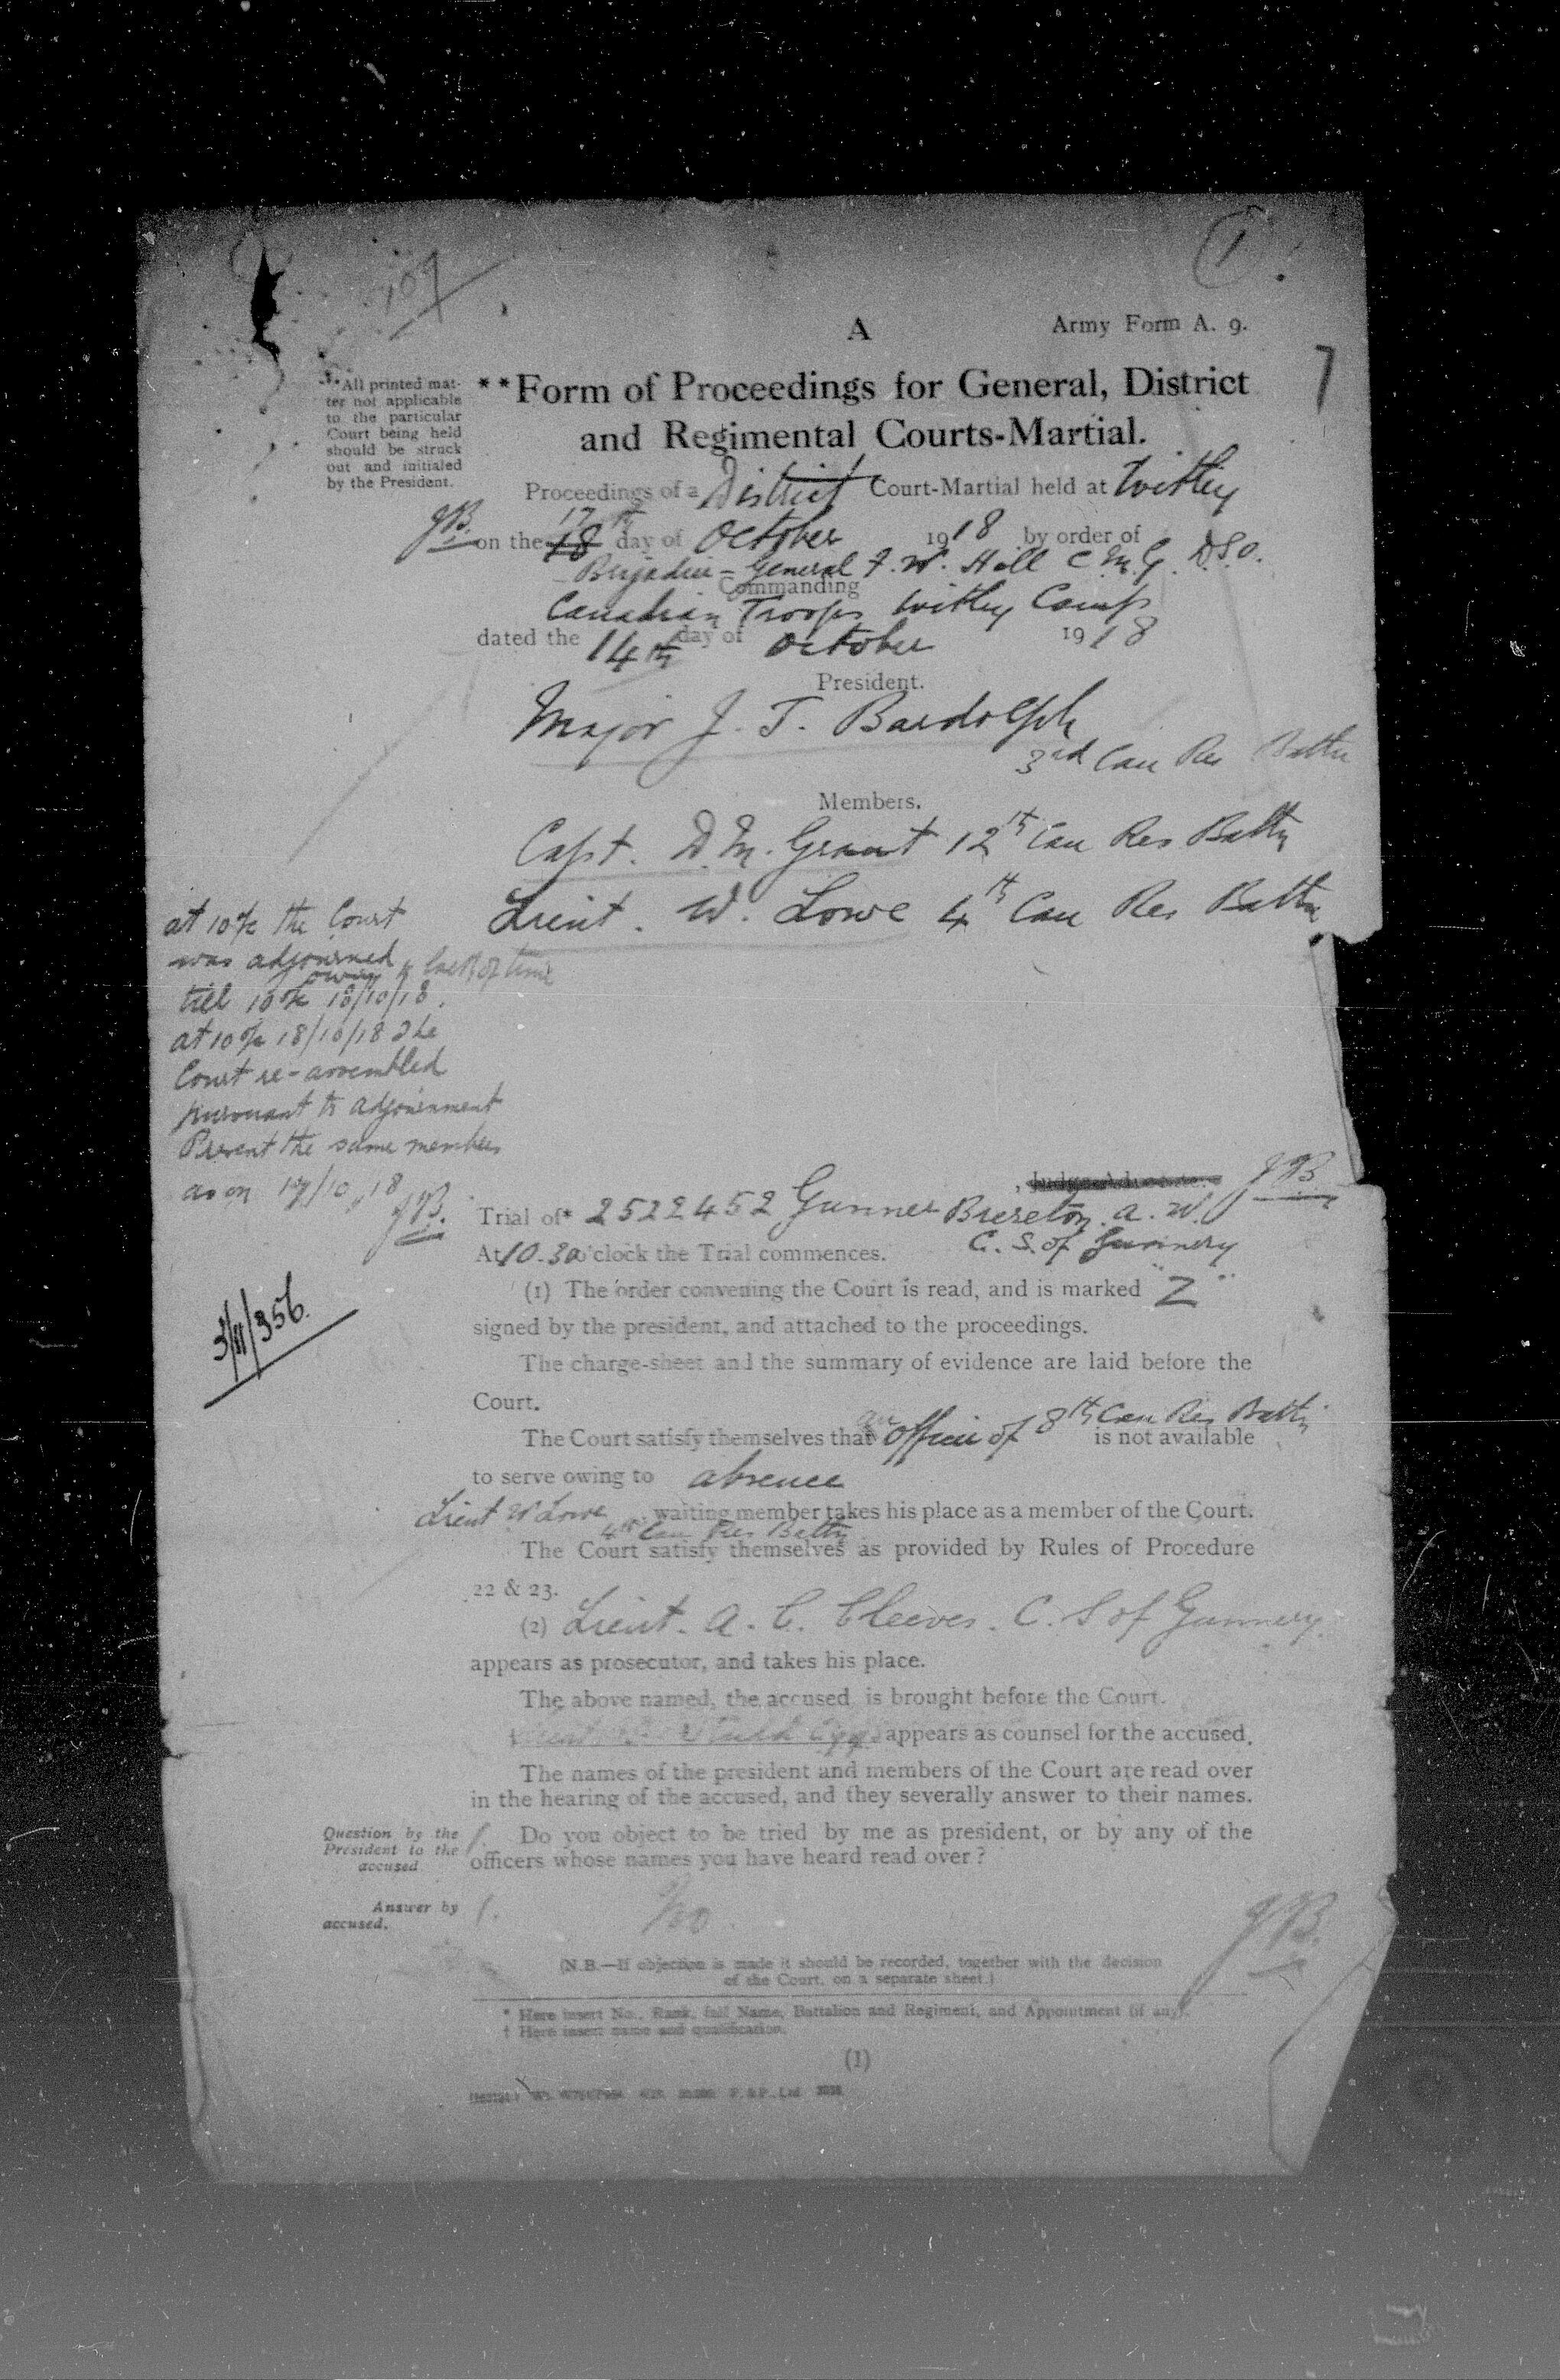 107
1
A
Army Form A. 9.
7
**Form of Proceedings for General, District
and Regimental Courts-Martial.
**All printed mat-
ter not applicable
to the particular
Court being held
should be struck
out and initialed
by the President.
Proceedings of a District Court-Martial held at Witley
JB. on the 18 17th day of October 1918 by order of
Brigadier-General F. W. Hill C.M.G. D.S.O.
Commanding
Canadian Troops Witley Camp
dated the 14th day of October 1918
President.
Major J. T. Bardolph
3rd Can Res Battn
Members.
Capt. D. M. Grant 12th Can Res Battn
Lieut. W. Lowe 4th Can Res Battn
at 10 the Court
was adjourned owing to lack of time
till 10 18/10/18.
at 10 18/10/18 the
Court re-assembled
pursuant to adjournment
Present the same members
as on 17/10/18
JB.
Judge-Advocate. JB
Trial of* 2522452 Gunner Brereton. A. W.
C. S. of Gunnery
At 10.30 o'clock the Trial commences.
(1) The order convening the Court is read, and is marked "Z"
signed by the president, and attached to the proceedings.
3/11/356.
The charge-sheet and the summary of evidence are laid before the
Court.
The Court satisfy themselves that an officer of 8th Can Res Battn is not available
to serve owing to absence
Lieut W Lowe 4th Can Res Battn waiting member takes his place as a member of the Court.
The Court satisfy themselves as provided by Rules of Procedure
22 & 23.
(2) Lieut. A. C. Cleeves. C. S of Gunnery.
appears as prosecutor, and takes his place.
The above named, the accused is brought before the Court.
appears as counsel for the accused.
The names of the president and members of the Court are read over
in the hearing of the accused, and they severally answer to their names.
Question by the
President to the
accused
1. Do you object to be tried by me as president, or by any of the
officers whose names you have heard read over?
Answer by
accused.
1. No.
JB.
(N.B.—If objection is made it should be recorded, together with the decision
of the Court, on a separate sheet.)
* Here insert No., Rank, full Name, Battalion and Regiment, and Appointment (if any).
† Here insert name and qualification.
(1)